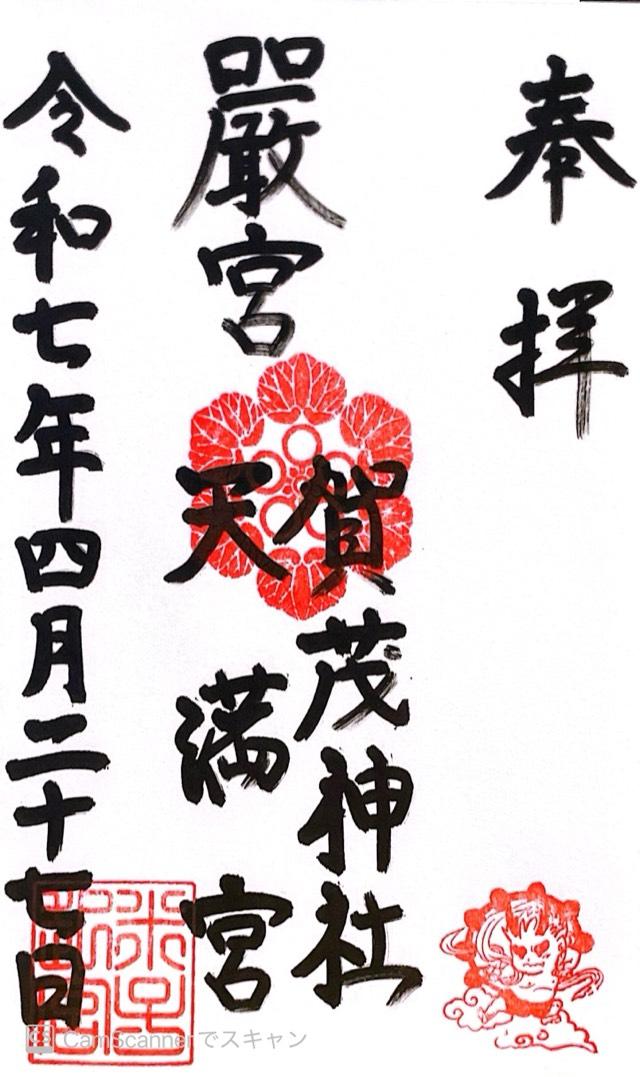 奉拝
嚴宮
賀茂神社
天満宮
令和七年四月二十七日
CS CamScannerでスキャン